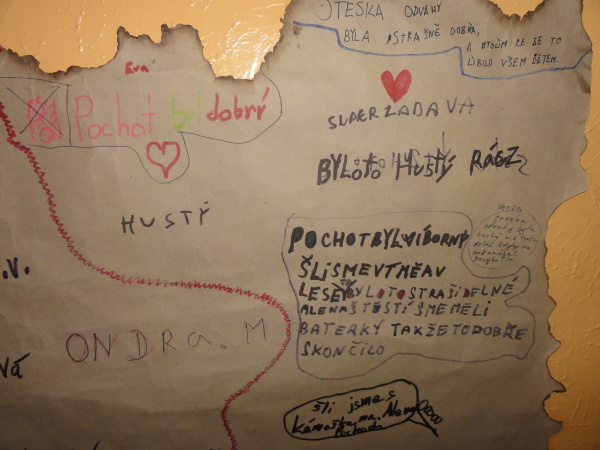 STESKA ODVAHY
BYLA STRAŠNĚ DOBŘÁ,
A MYSLÍM ŽE SE TO
LÍBILO VŠEM DĚTEM.
Eva
Pochot byl dobrý
SUPER ZABAVA
BYLO TO HUSTÝ RÁZ
HUSTÝ
POCHOTBYLVÍBORNÝ
ŠLISMEVTMĚAV
LESEŤBYLOTOSTRAŠIDELNÉ
ALENAŠTĚSTÍ SMEMĚLI
BATERKY TAKŽETODOBŘE
SKONČILO
.V.
ONDRA. M
vá
šli jsme s